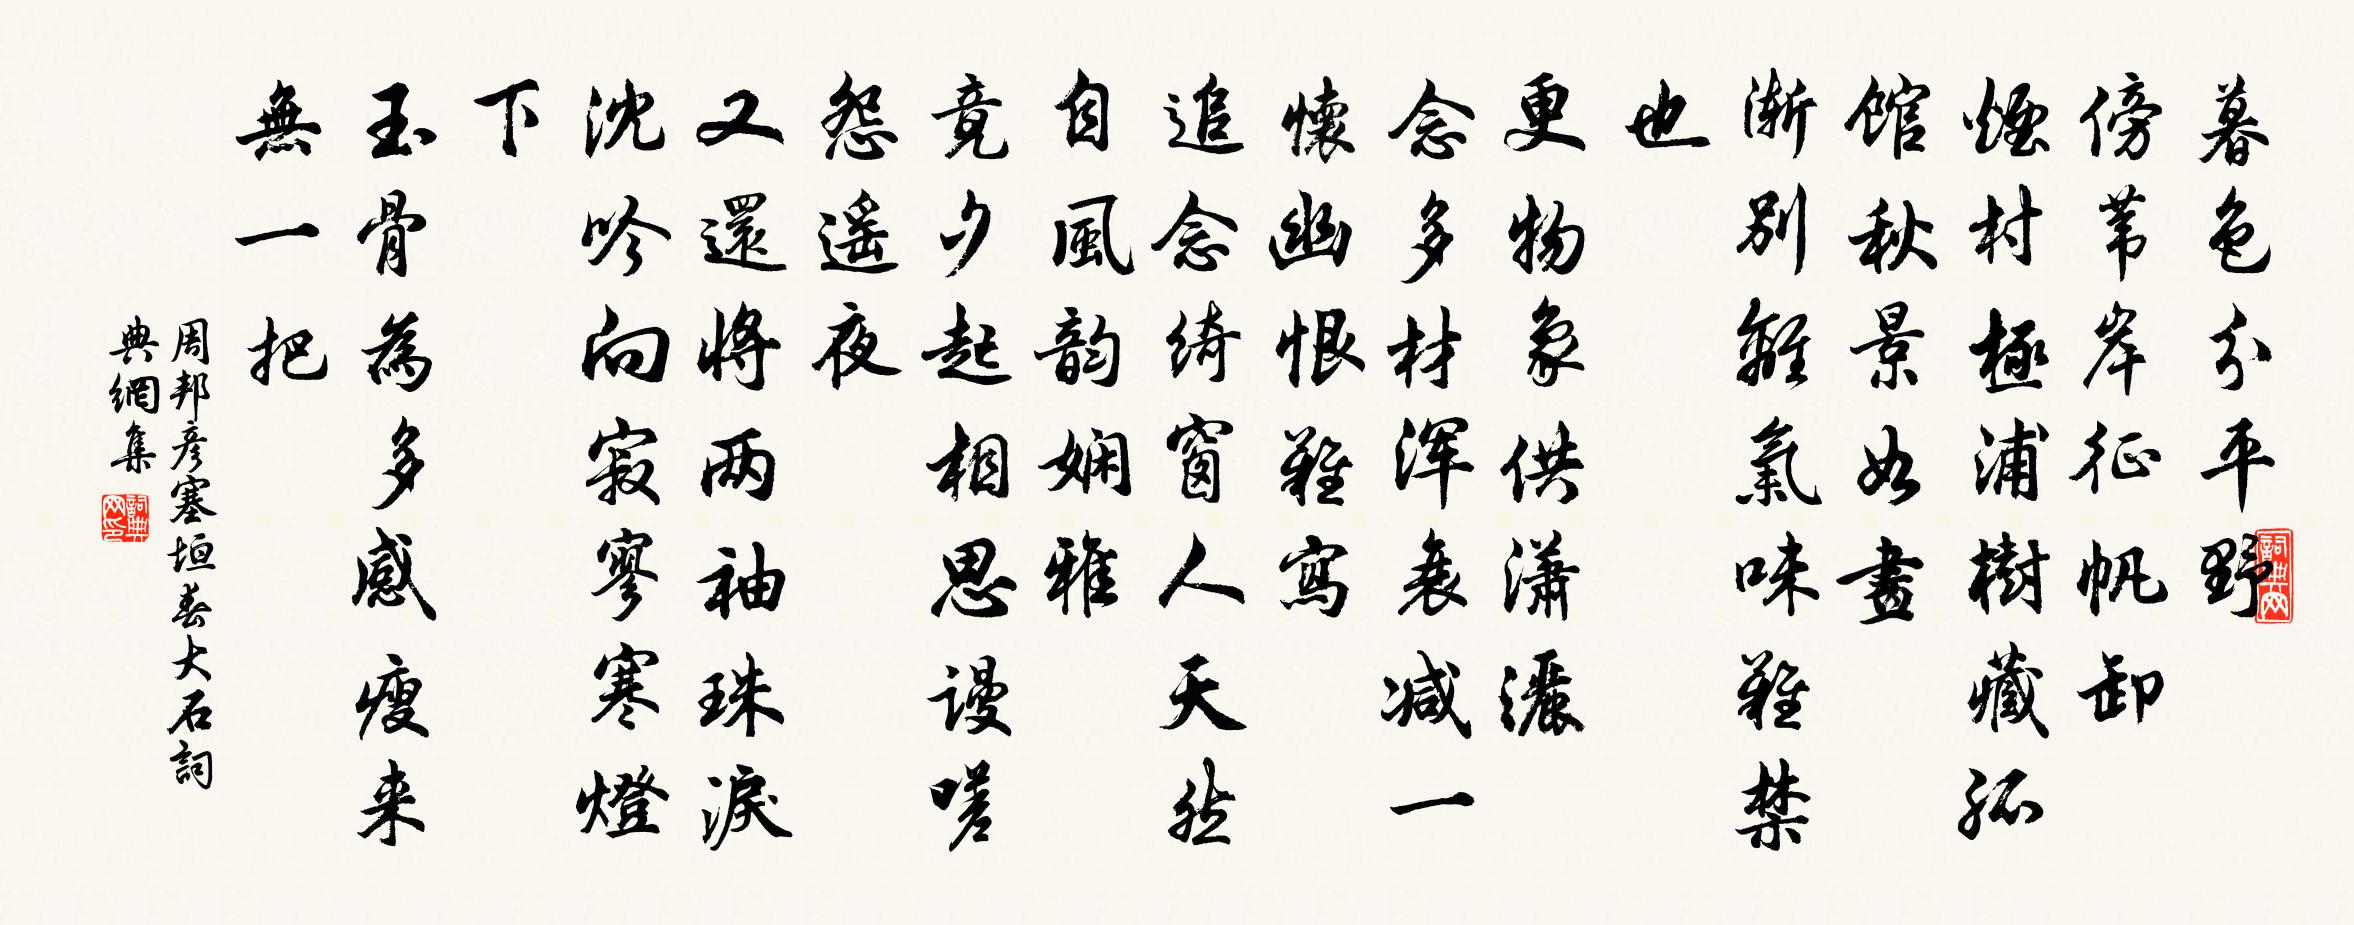 暮色分平野
傍苇岸征帆卸
煙村極浦樹藏孤
馆秋景如畫
渐别離氣味難禁
也
更物象供潇灑
念多材浑衰减一
懷幽恨難寫
追念绮窗人天然
自風韵娴雅
竟夕起相思谩嗟
怨遥夜
又還將两袖珠淚
沈吟向寂寥寒燈
下
玉骨為多感瘦来
無一把
周邦彦塞垣春大石詞
典網集
詞典网
詞典网印